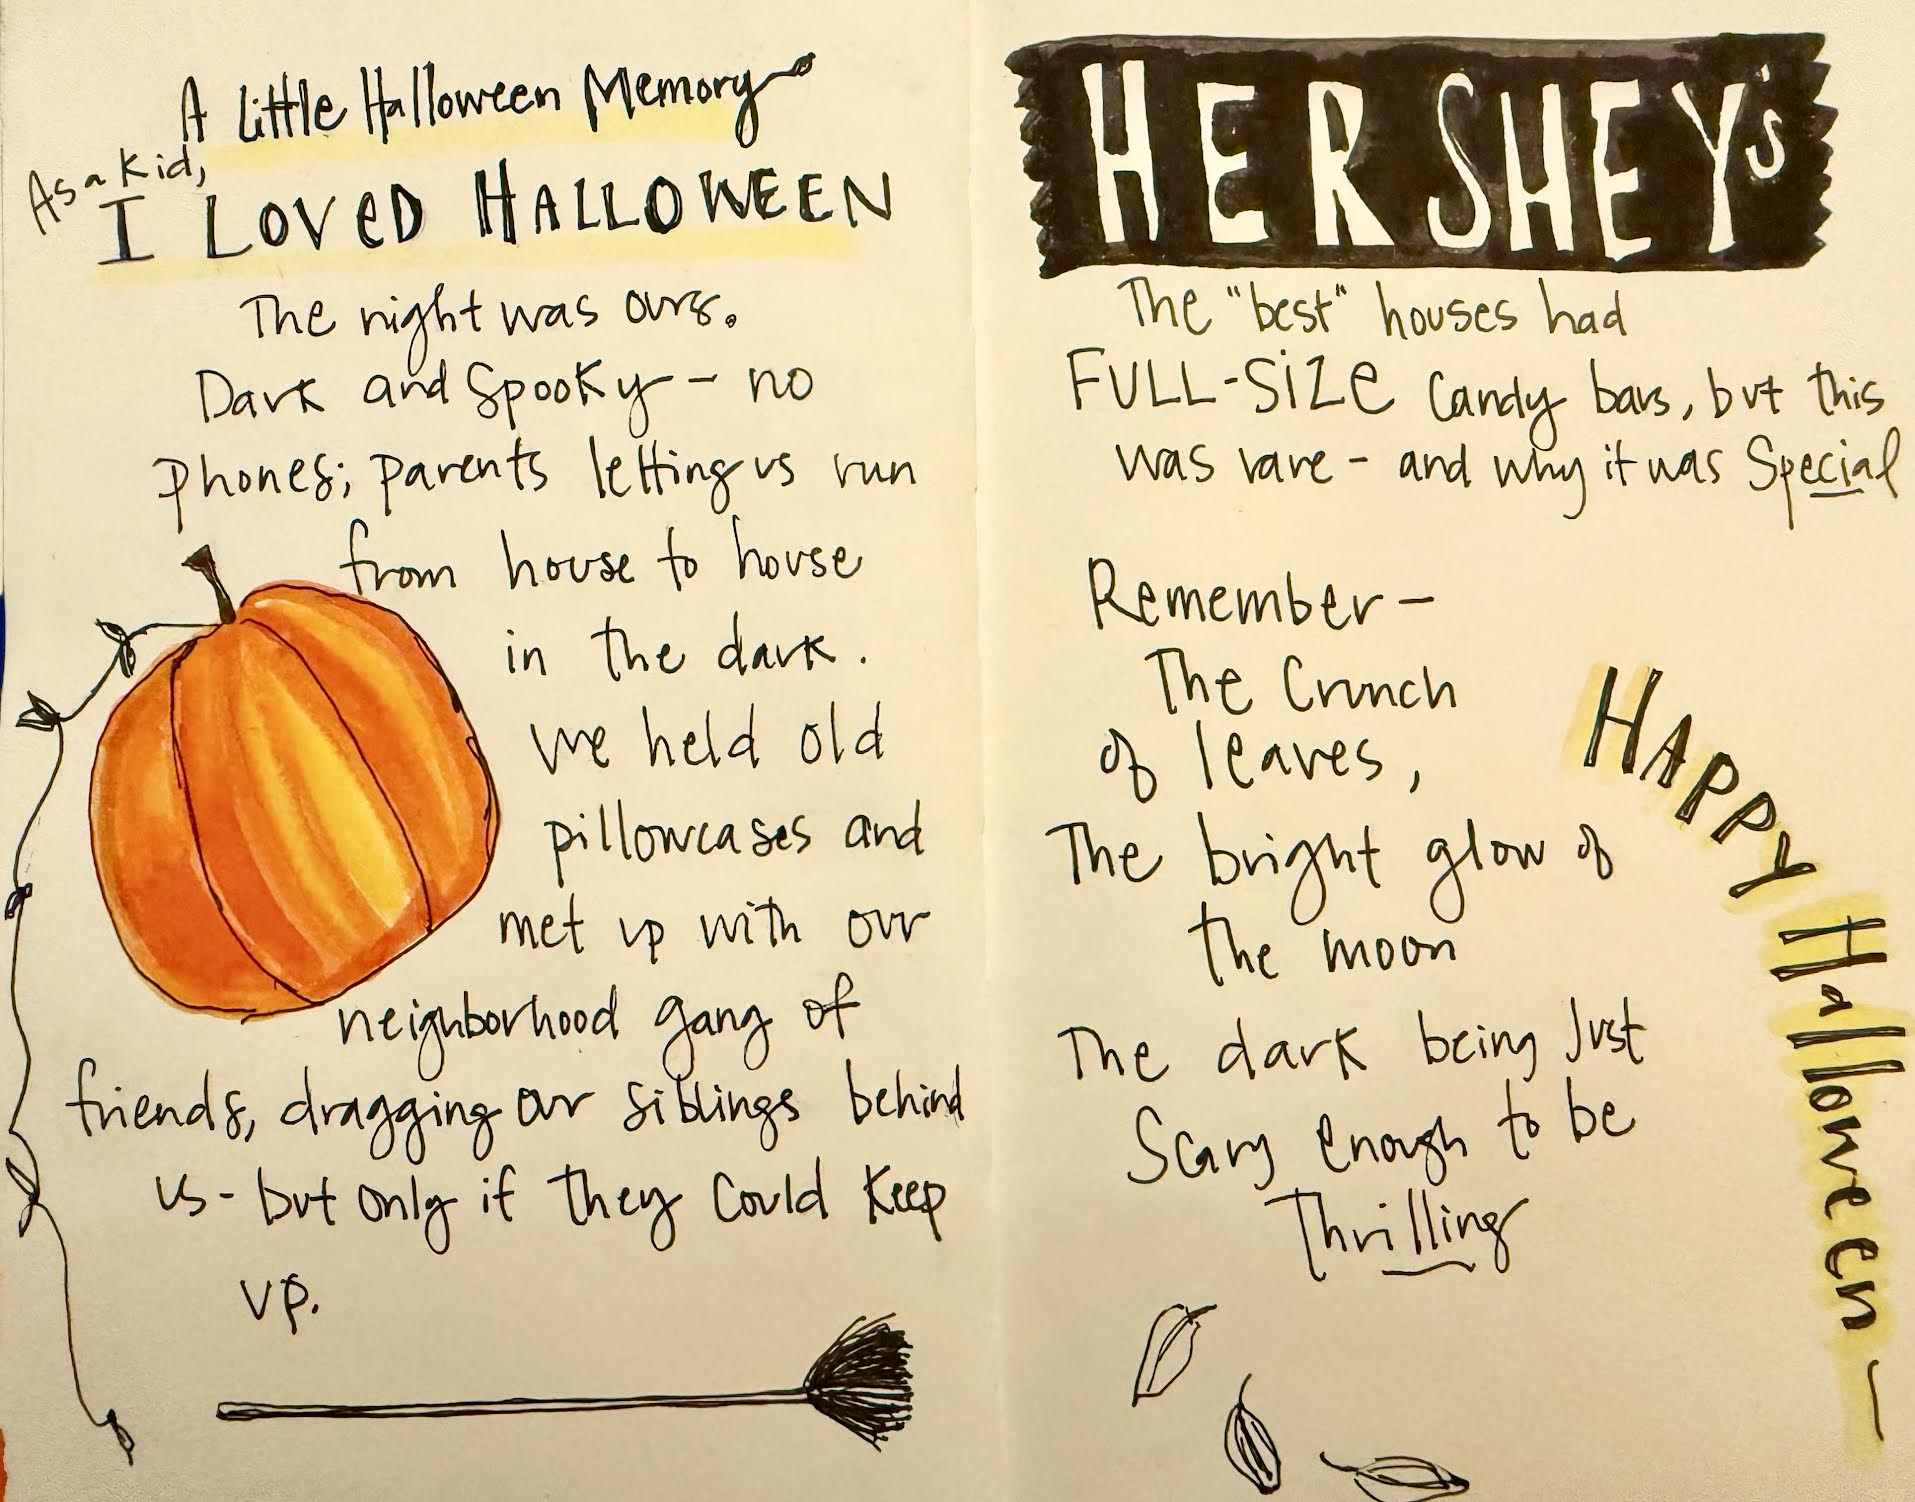 A little Halloween Memory
As a kid,
I LOVED HALLOWEEN
The night was ours.
Dark and spooky - no
phones; parents letting us run
from house to house
in the dark.
we held old
pillowcases and
met up with our
neighborhood gang of
friends, dragging our siblings behind
us - but only if they could keep
up.
HERSHEY'S
The "best" houses had
FULL-SIZE candy bars, but this
was rare - and why it was special
Remember -
The Crunch
of leaves,
The bright glow of
the moon
The dark being just
scary enough to be
Thrilling
HAPPY Halloween -